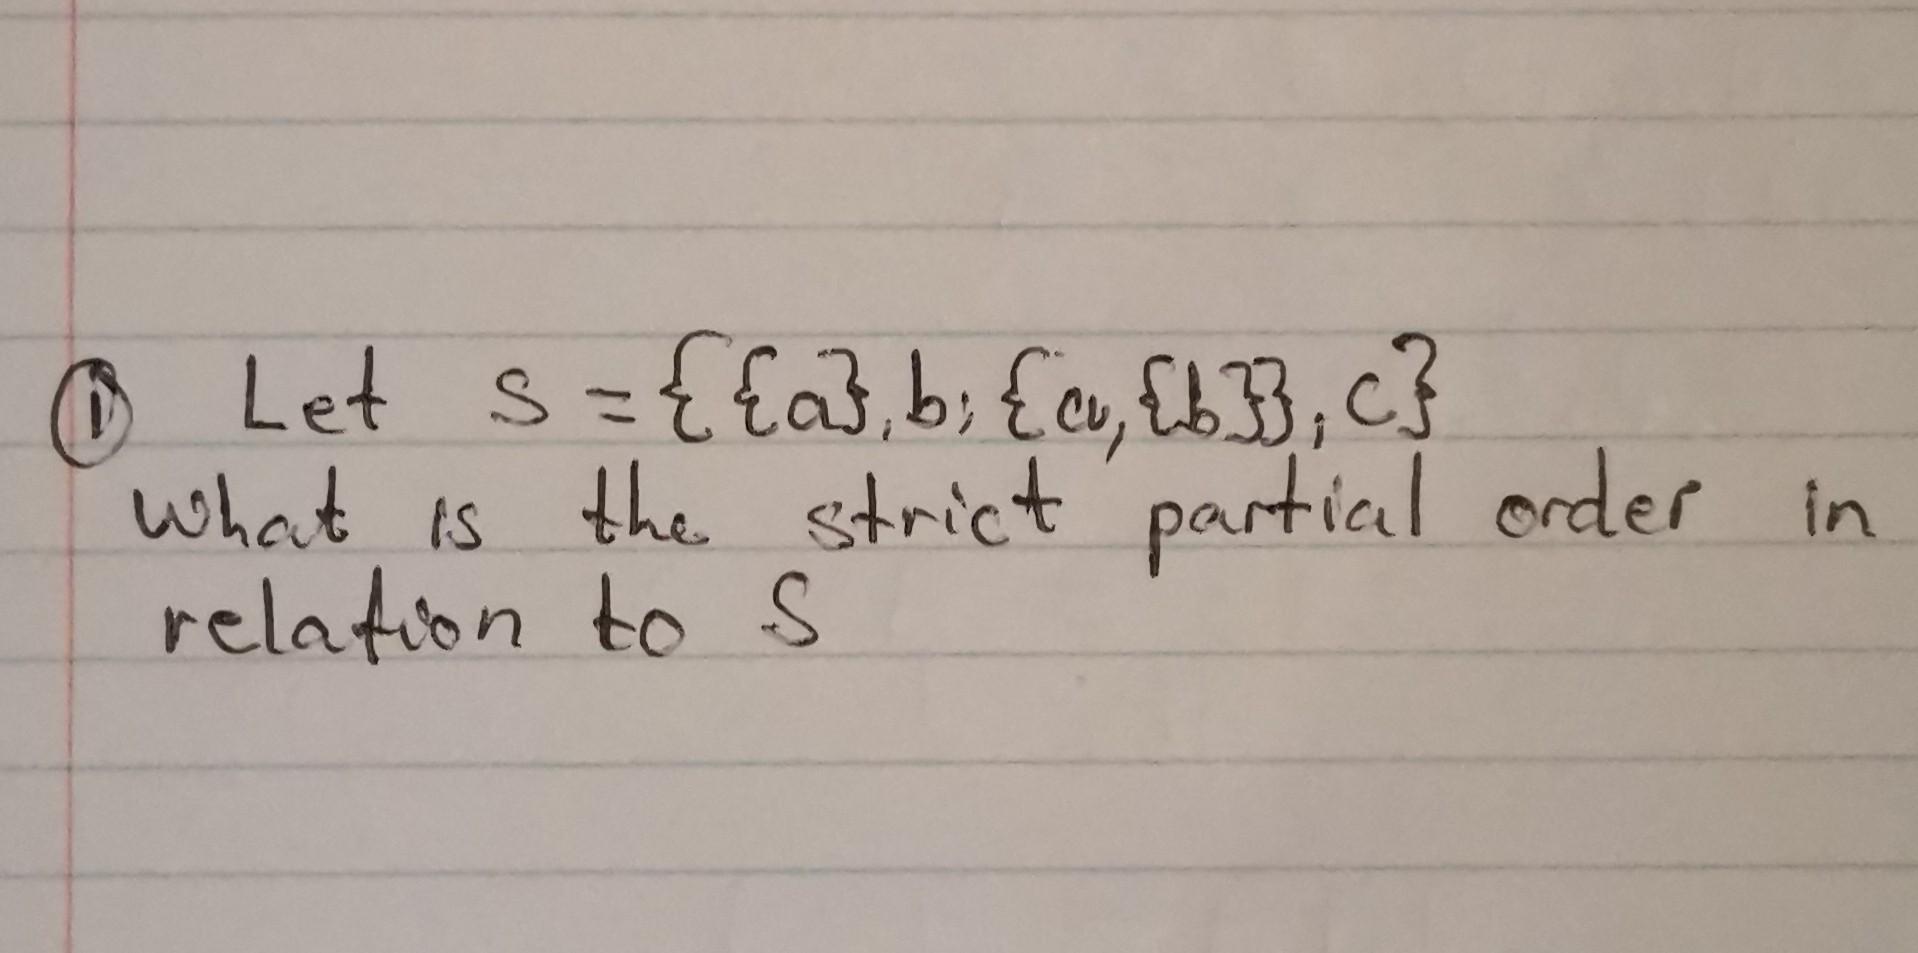 ① Let S = {{a}, b, {a, {b}}, c}
what is the strict partial order in
relation to S